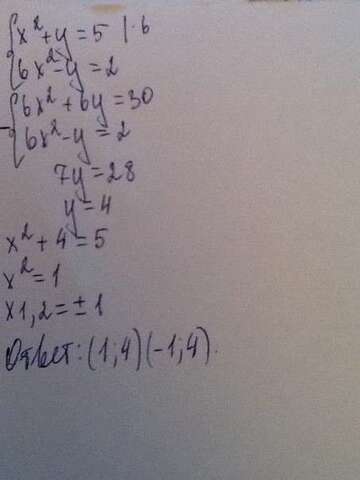 x² + y = 5 | · 6
6x² - y = 2
6x² + 6y = 30
6x² - y = 2
7y = 28
y = 4
x² + 4 = 5
x² = 1
x1,2 = ± 1
Ответ: (1;4) (-1;4).